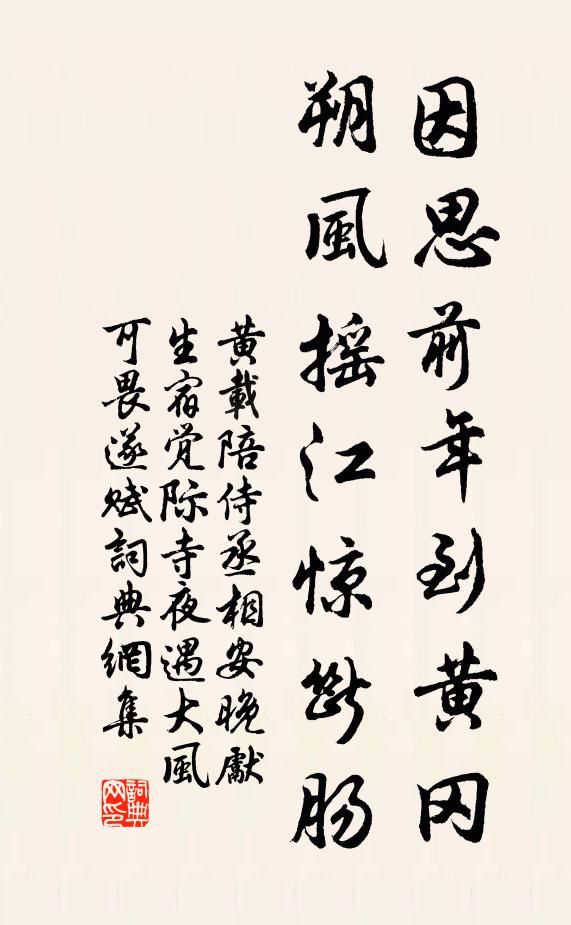 因思前年到黄冈
朔風摇江惊断肠
黄載陪侍丞相安晚獻
生宿觉际寺夜遇大風
可畏遂赋詞典網集
詞典网印